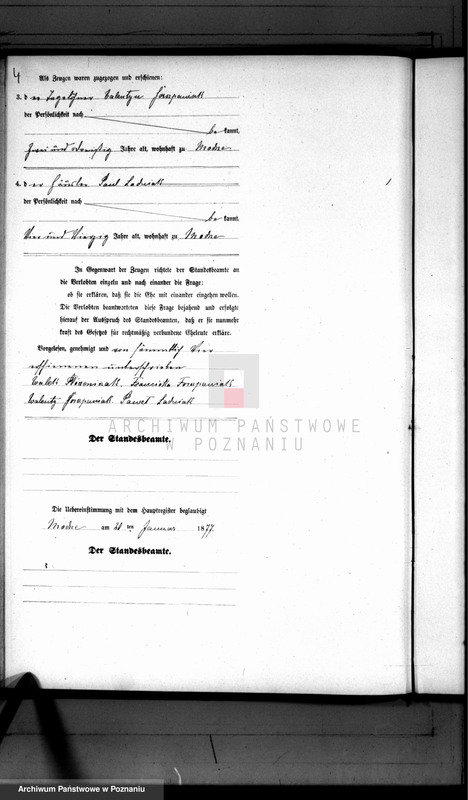 4
Als Zeugen waren zugezogen und erschienen:
3. der Tagelöhner Valentyn Szczepaniak
der Persönlichkeit nach
be kannt,
Zwei und dreißig Jahre alt, wohnhaft zu Modrze
4. der Häusler Paul Ludwiak
der Persönlichkeit nach
be kannt,
Vier und Vierzig Jahre alt, wohnhaft zu Modrze
In Gegenwart der Zeugen richtete der Standesbeamte an
die Verlobten einzeln und nach einander die Frage:
ob sie erklären, daß sie die Ehe mit einander eingehen wollen.
Die Verlobten beantworteten diese Frage bejahend und erfolgte
hierauf der Ausspruch des Standesbeamten, daß er sie nunmehr
kraft des Gesetzes für rechtmäßig verbundene Eheleute erkläre.
Vorgelesen, genehmigt und von sämmtlich Vier
erschienenen unterschrieben
Franciszka
Paweł
Der Standesbeamte.
Die Uebereinstimmung mit dem Hauptregister beglaubigt
am ten Januar 1877.
Der Standesbeamte.
ARCHIWUM PAŃSTWOWE
W POZNANIU
Archiwum Państwowe w Poznaniu